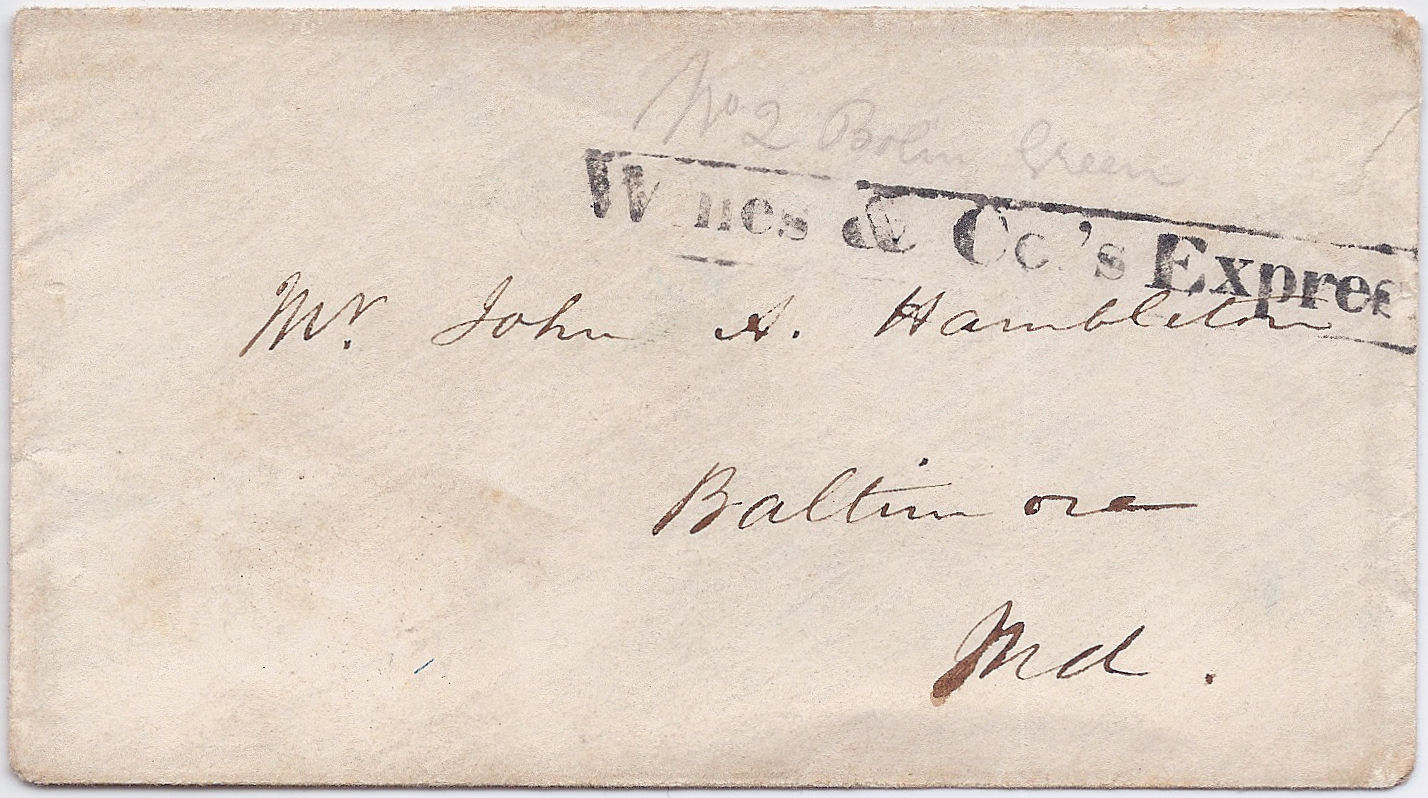 No 2 Green
& Co.'s Expres
Mr. John A. Hambleton
Baltimore
Md.